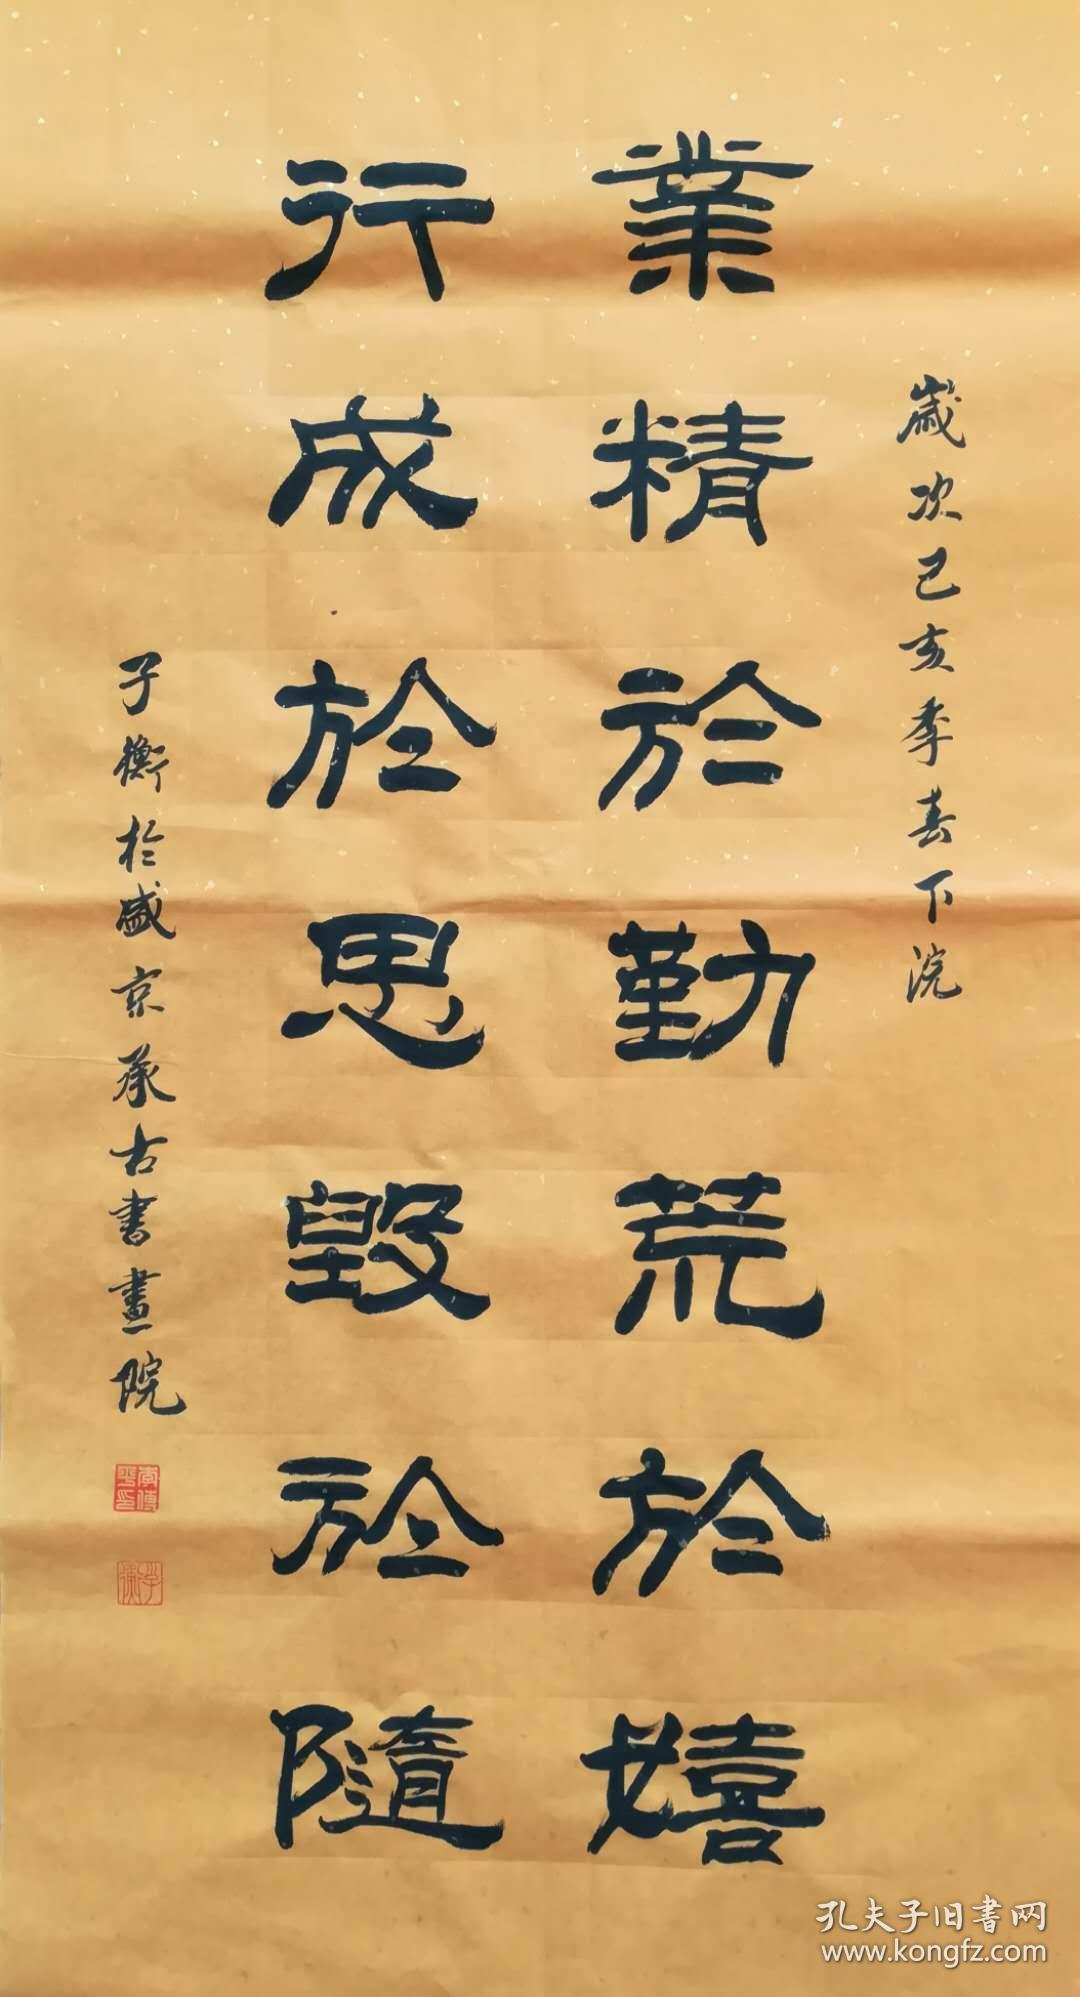 歲次己亥季春下浣
業精於勤荒於嬉
行成於思毀於隨
子衡於盛京承古書畫院
孔夫子旧书网
www.kongfz.com